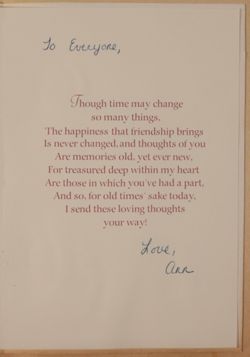 To Everyone,
Though time may change
so many things,
The happiness that friendship brings
Is never changed, and thoughts of you
Are memories old, yet ever new,
For treasured deep within my heart
Are those in which you've had a part,
And so, for old times' sake today,
I send these loving thoughts
your way!
Love,
Ann